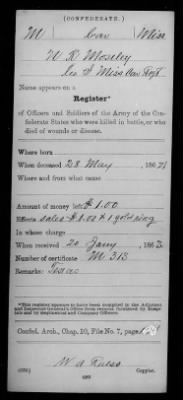 (CONFEDERATE.)
M Cav Miss
W R Moseley
Co. F Miss Cav Regt
Name appears on a
Register*
of Officers and Soldiers of the Army of the Confederate States who were killed in battle, or who died of wounds or disease.
Where born
When deceased 28 May, 186
Where and from what
Amount of money left $1.00
Effects sales $1.00 & 1 gold ring
In whose charge
When received 20 Jany, 186
Number of certificate M 313
Remarks: Texas
*This register appears to have been compiled in the Adjutant
Confed. Arch., Chap. 10, File No. 7, page
W A
Copyist.